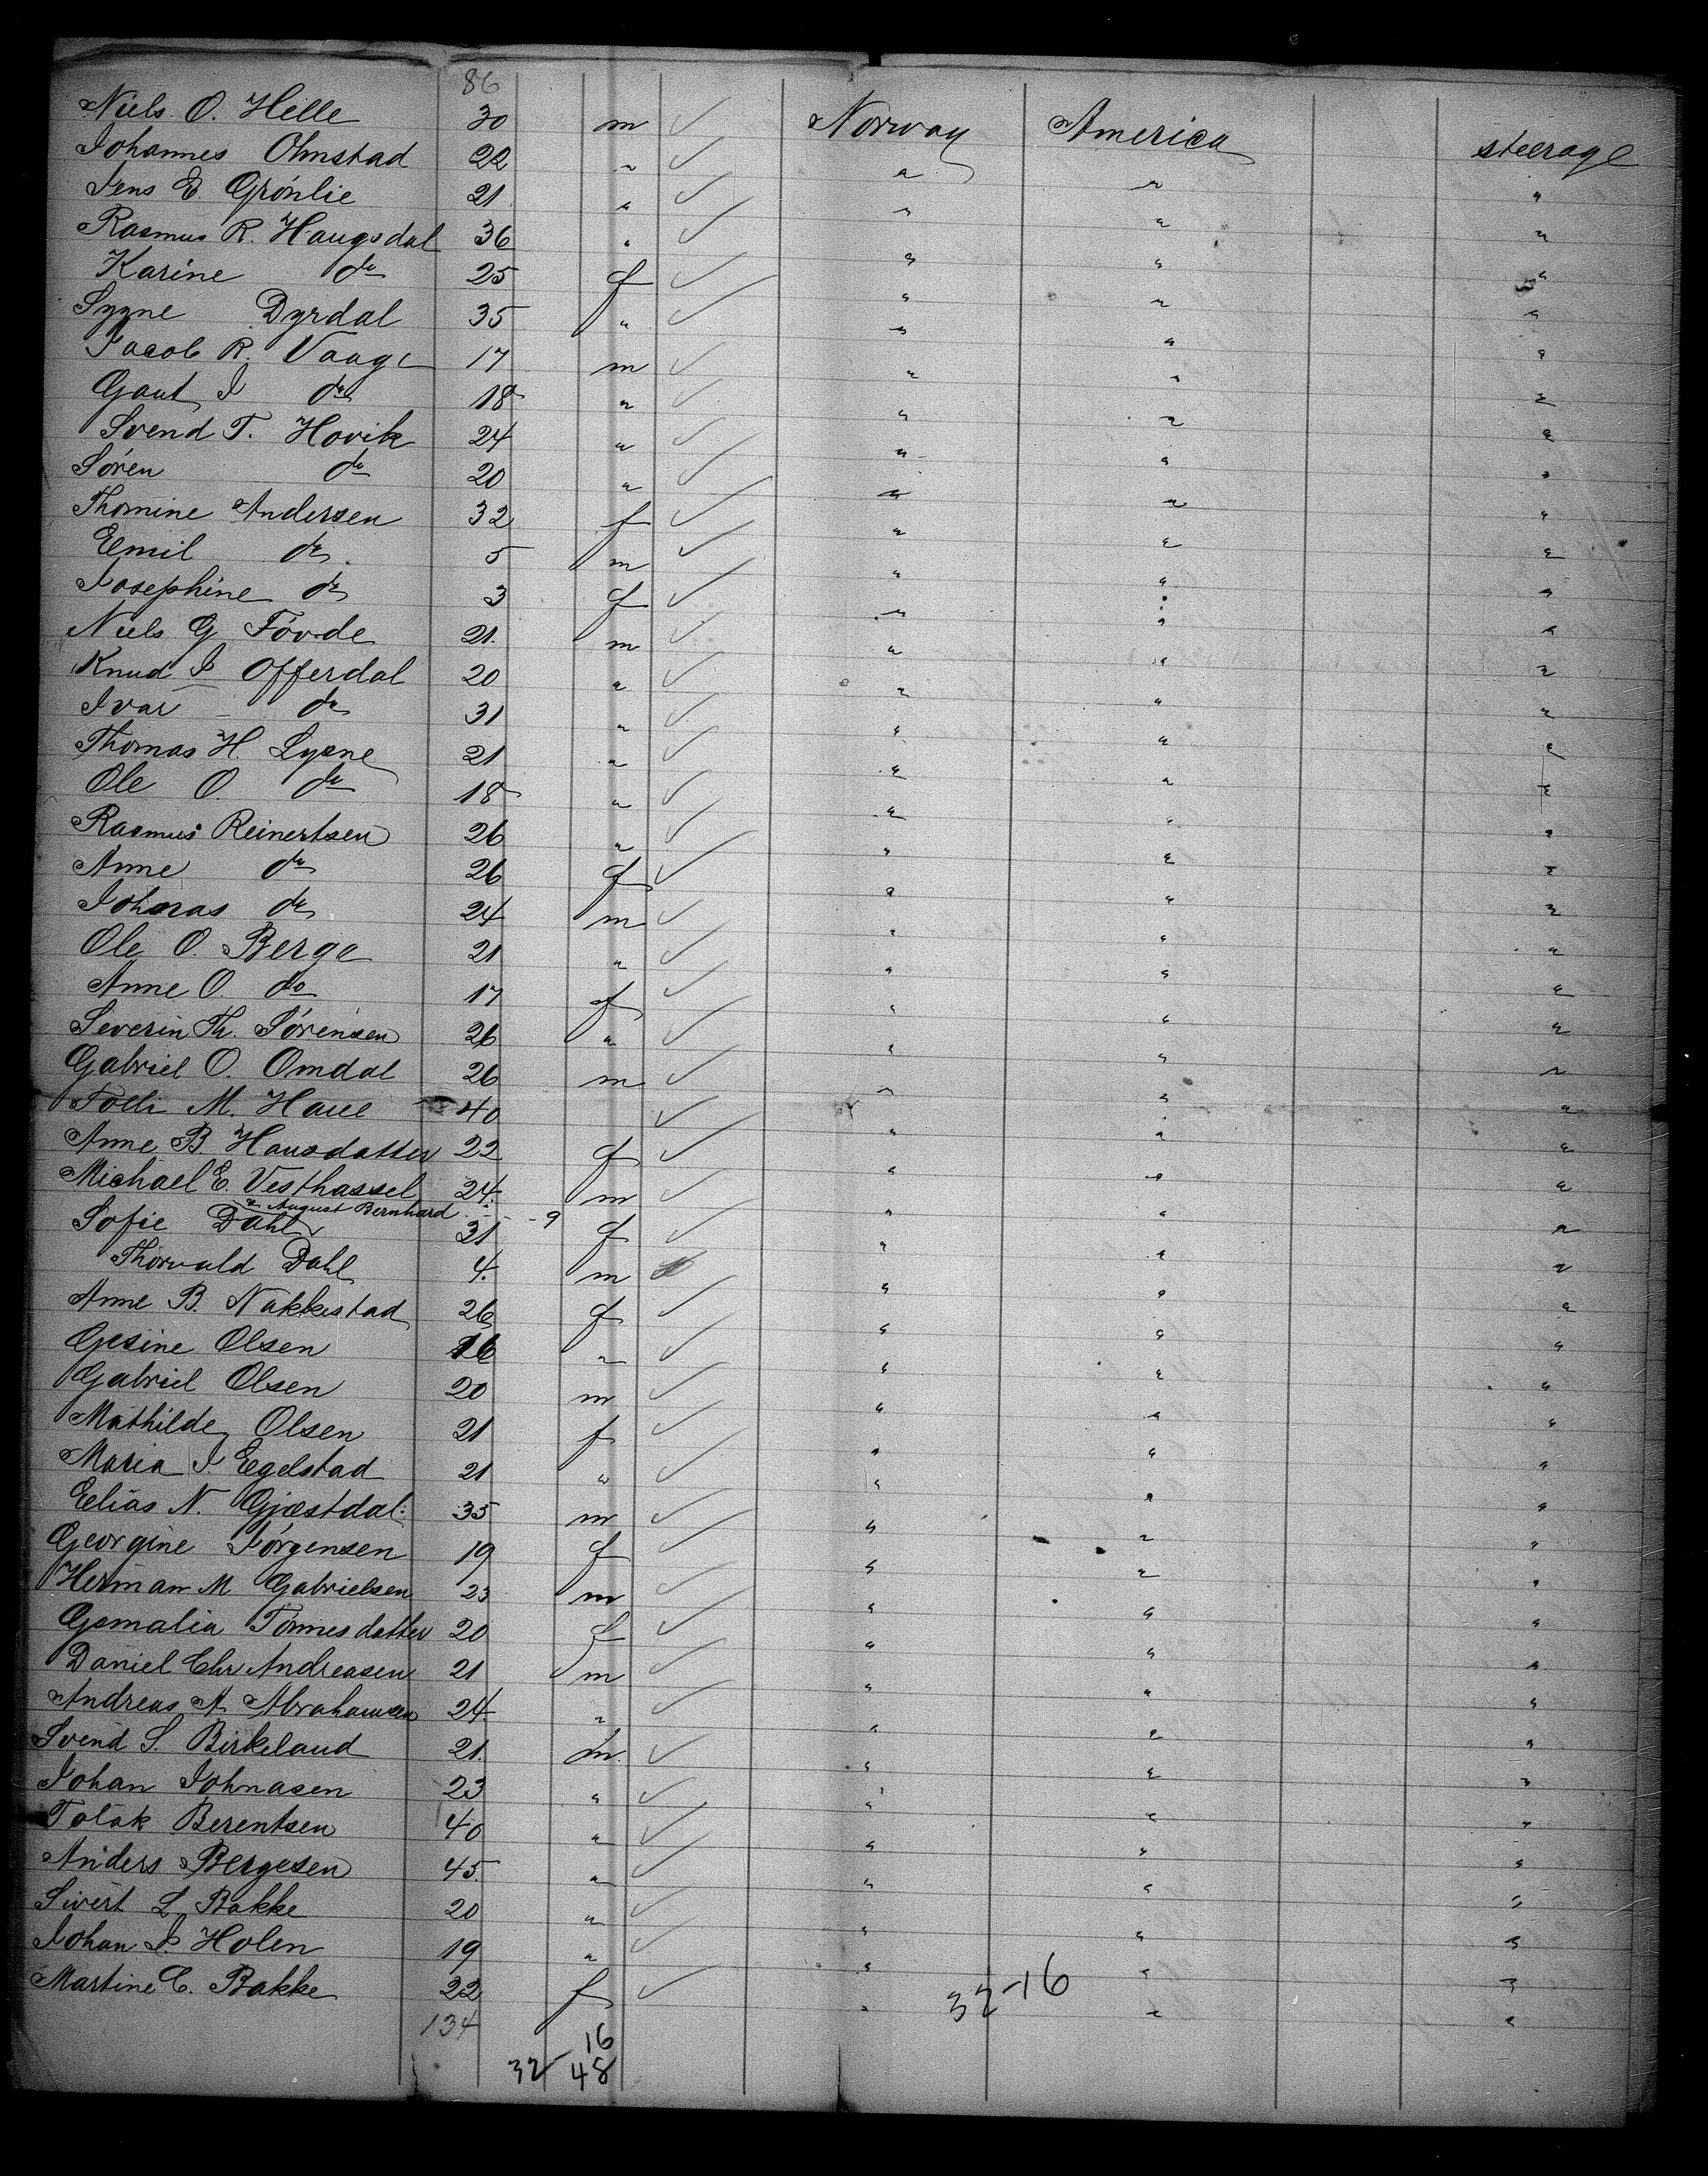 86
Niels O. Helle 30 m ✓ Norway America steerage
Johannes Olmstad 22 " ✓ " " "
Jens E. Grönlie 21 " ✓ " " "
Rasmus R. Haugsdal 36 " ✓ " " "
Karine do 25 f ✓ " " "
Synne Dyrdal 35 " ✓ " " "
Jacob R. Vaage 17 m ✓ " " "
Gaut J do 18 " ✓ " " "
Svend T. Hovik 24 " ✓ " " "
Sören do 20 " ✓ " " "
Thomine Andersen 32 f ✓ " " "
Eemil do 5 m ✓ " " "
Josephine do 3 f ✓ " " "
Niels G Förde 21. m ✓ " " "
Knud J Offerdal 20 " ✓ " " "
Ivar do 31 " ✓ " " "
Thomas H. Lysne 21 " ✓ " " "
Ole O. do 18 " ✓ " " "
Rasmus Reinertsen 26 " ✓ " " "
Anne do 26 f ✓ " " "
Johnas do 24 m ✓ " " "
Ole O. Berge 21 " ✓ " " "
Anne O. do 17 f ✓ " " "
Severin Th. Sörensen 26 " ✓ " " "
Gabriel O. Omdal 26 m ✓ " " "
M. 40 ✓ " " "
Anne B. Hansdatter 22 f ✓ " " "
Michael E. Vesthassel 24. m ✓ " " "
& August Bernhard
Sofie Dahl 31 - 9 f ✓ " " "
Thorvald Dahl 4. m " " "
Anne B. Nakkestad 26 f ✓ " " "
Gesine Olsen 16 " ✓ " " "
Gabriel Olsen 20 m ✓ " " "
Mathilde Olsen 21 f ✓ " " "
Maria J. Eegelstad 21 " ✓ " " "
Eelias N. Gjæstdal. 35 m ✓ " " "
Georgine Jörgensen 19 f ✓ " " "
Herman M Gabrielsen 23 m ✓ " " "
Gemalia Tönnesdatter 20 f ✓ " " "
Daniel Chr Andreasen 21 m ✓ " " "
Andreas A. Abrahamsen 24. " ✓ " " "
Svend S. Birkeland 21. m. ✓ " " "
Johan Johnasen 23 " ✓ " " "
Tolak Berentsen 40 " ✓ " " "
Anders Bergesen 45. " ✓ " " "
Sivert L. Bakke 20 " ✓ " " "
Johan J. Holen 19 " ✓ " " "
Martine C. Bakke 22 f ✓ " " "
32-16
134
16
32 48